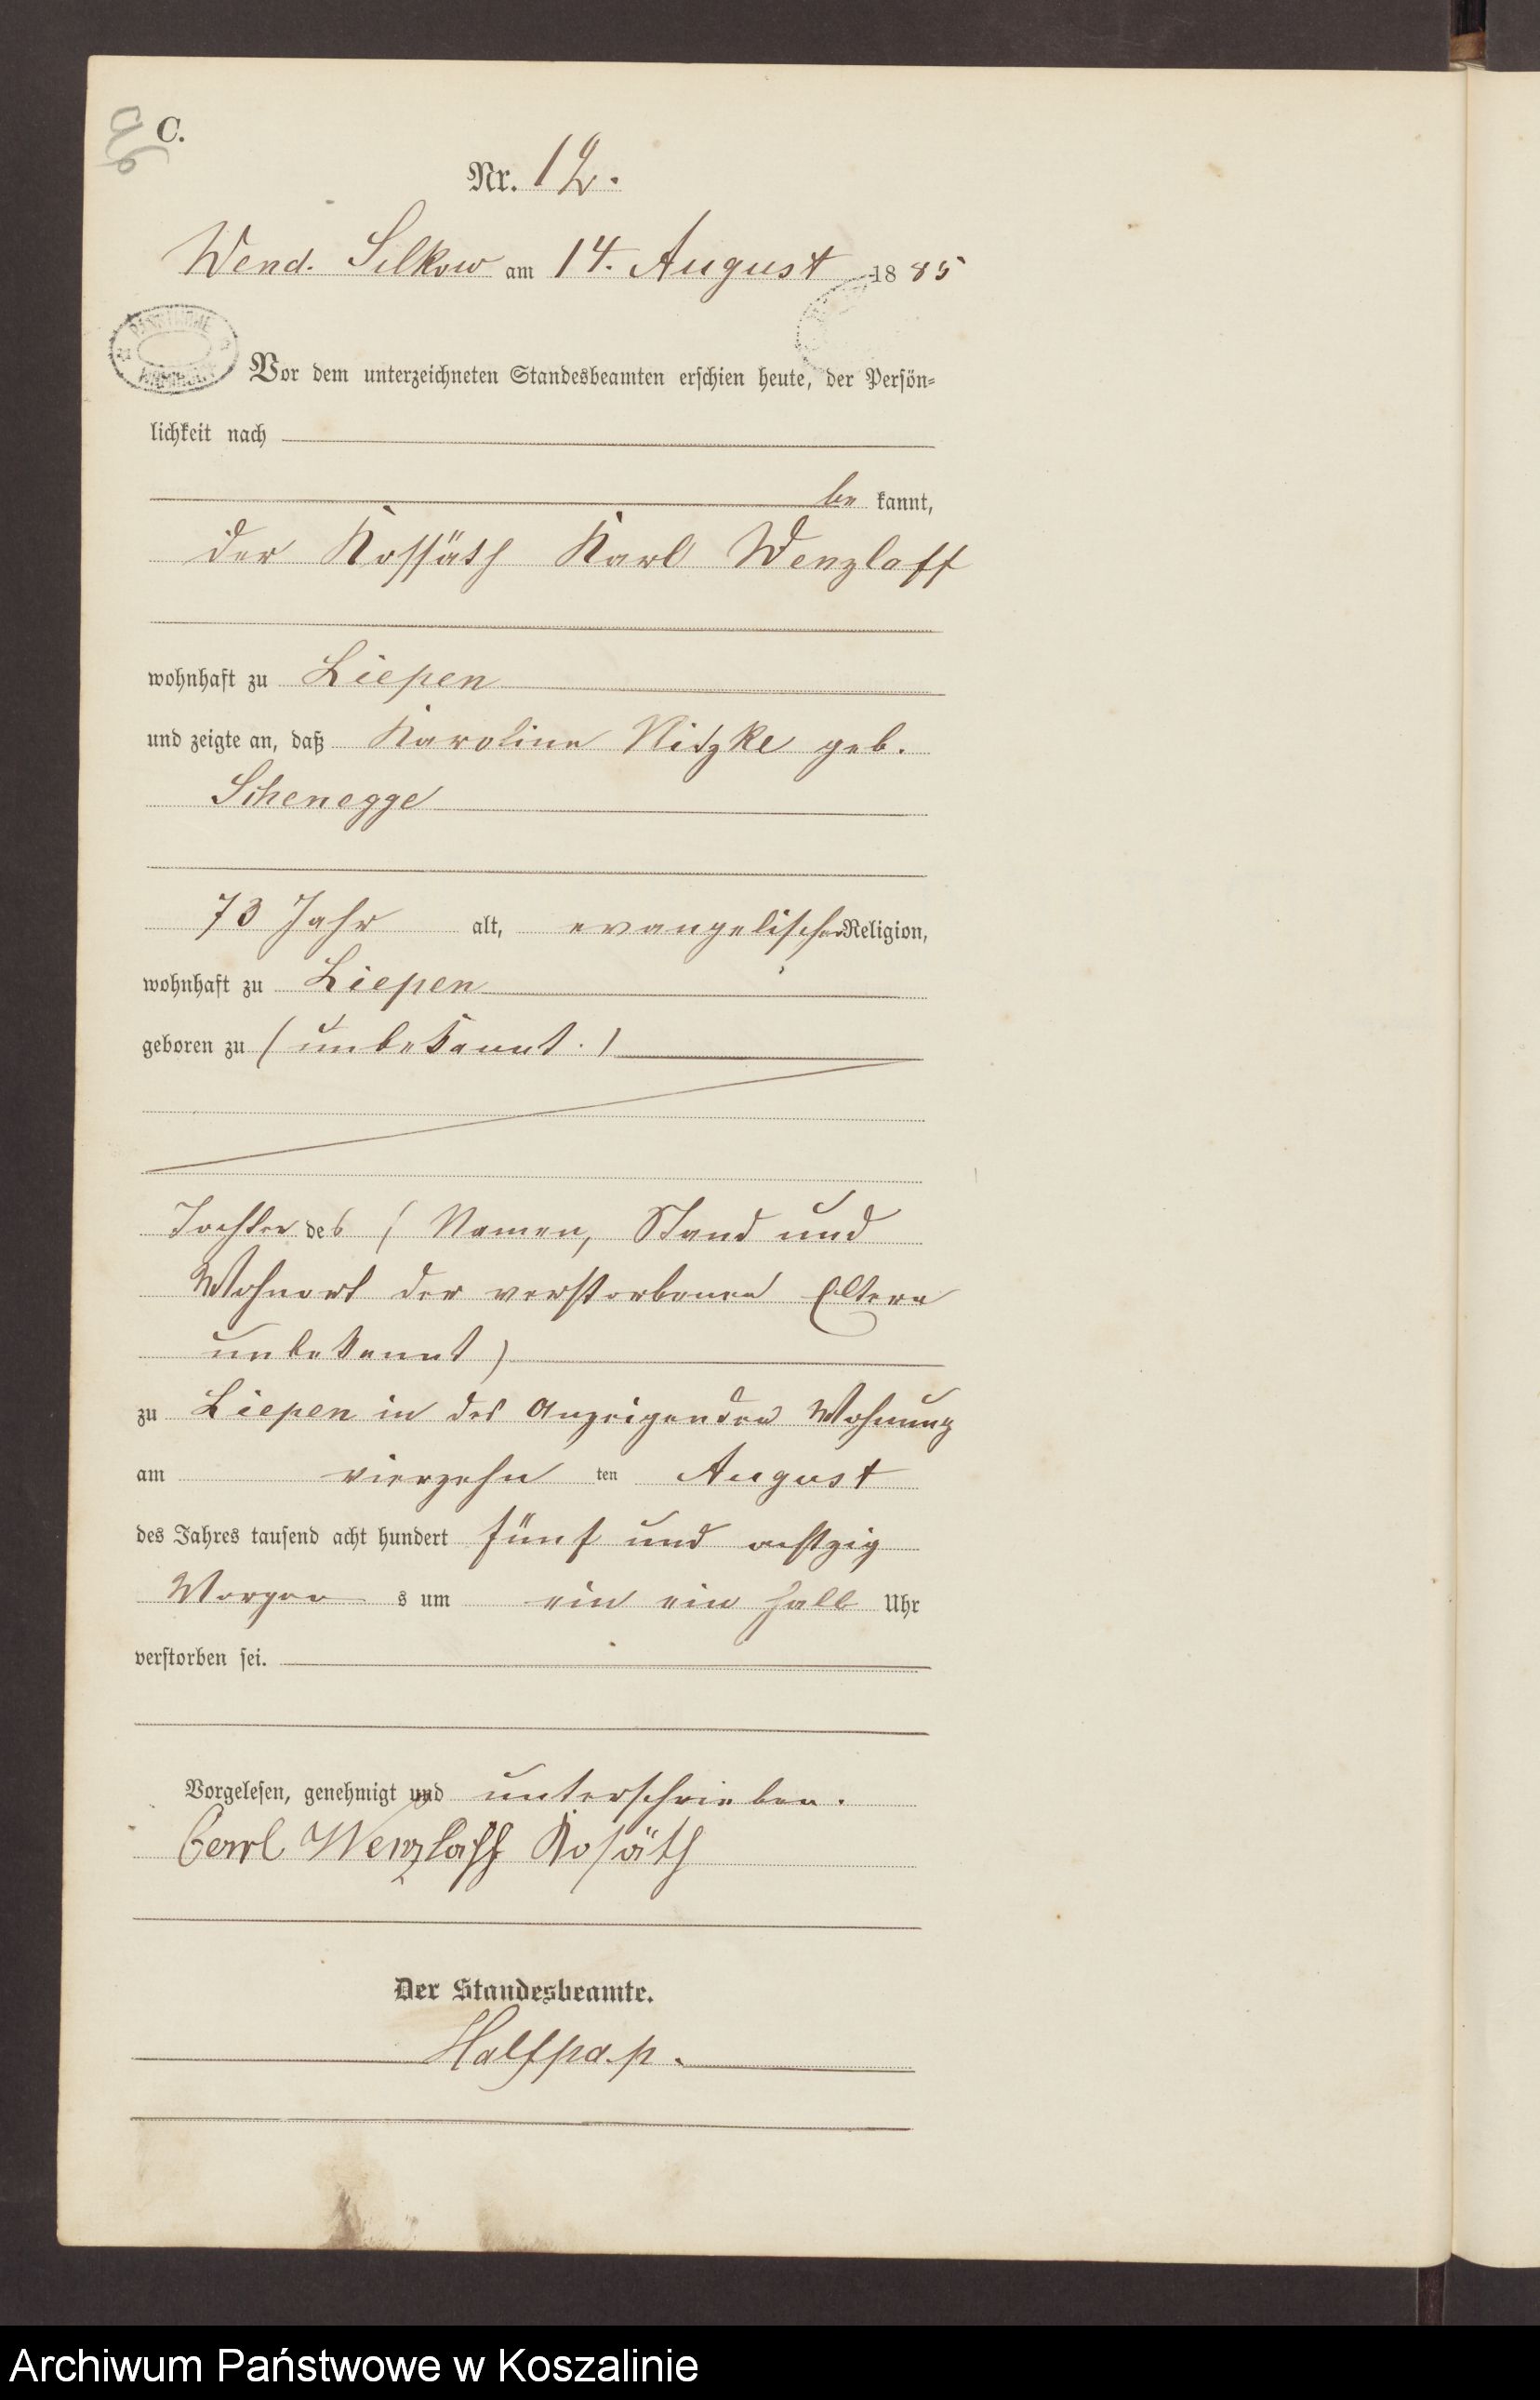 C.
Nr. 12.
Wend. Silkow am 14. August 1885
Vor dem unterzeichneten Standesbeamten erschien heute, der Persön-
lichkeit nach
be kannt,
der Kossäth Karl Wenzlaff
wohnhaft zu Liepen
und zeigte an, daß Karoline Nitzke geb.
Schenegge
73 Jahr alt, evangelischer Religion,
wohnhaft zu Liepen
geboren zu (unbekannt.)
Tochter des (Namen, Stand und
Wohnort der verstorbenen Eltern
unbekannt)
zu Liepen in des Anzeigenden Wohnung
am vierzehn ten August
des Jahres tausend acht hundert fünf und achtzig
Morgen s um ein ein halb Uhr
verstorben sei.
Vorgelesen, genehmigt und unterschrieben.
Carl Wenzlaff Kosäth
Der Standesbeamte.
Halfpap.
Archiwum Państwowe w Koszalinie